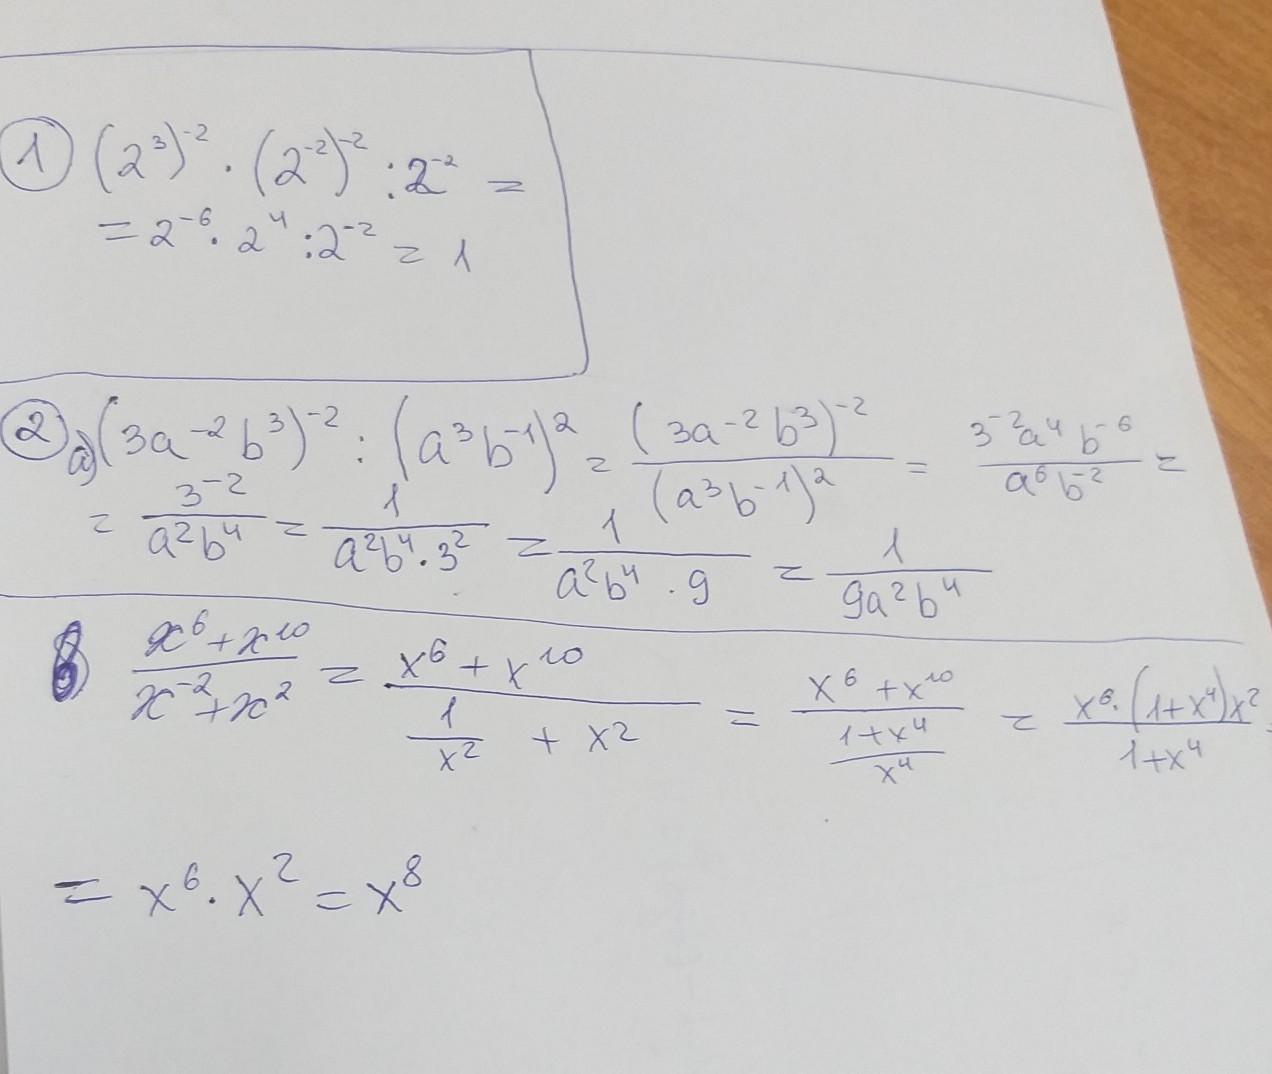 1 (2³)⁻² · (2⁻²)⁻² : 2⁻² =
= 2⁻⁶ · 2⁴ : 2⁻² = 1
2 a) (3a⁻²b³)⁻² : (a³b⁻¹)² = (3a⁻²b³)⁻² / (a³b⁻¹)² = 3⁻²a⁴b⁻⁶ / a⁶b⁻² =
= 3⁻² / a²b⁴ = 1 / a²b⁴·3² = 1 / a²b⁴·9 = 1 / 9a²b⁴
б) x⁶+x¹⁰ / x⁻²+x² = x⁶+x¹⁰ / (1/x² + x²) = x⁶+x¹⁰ / ((1+x⁴)/x⁴) = x⁶·(1+x⁴)x² / 1+x⁴
= x⁶·x² = x⁸